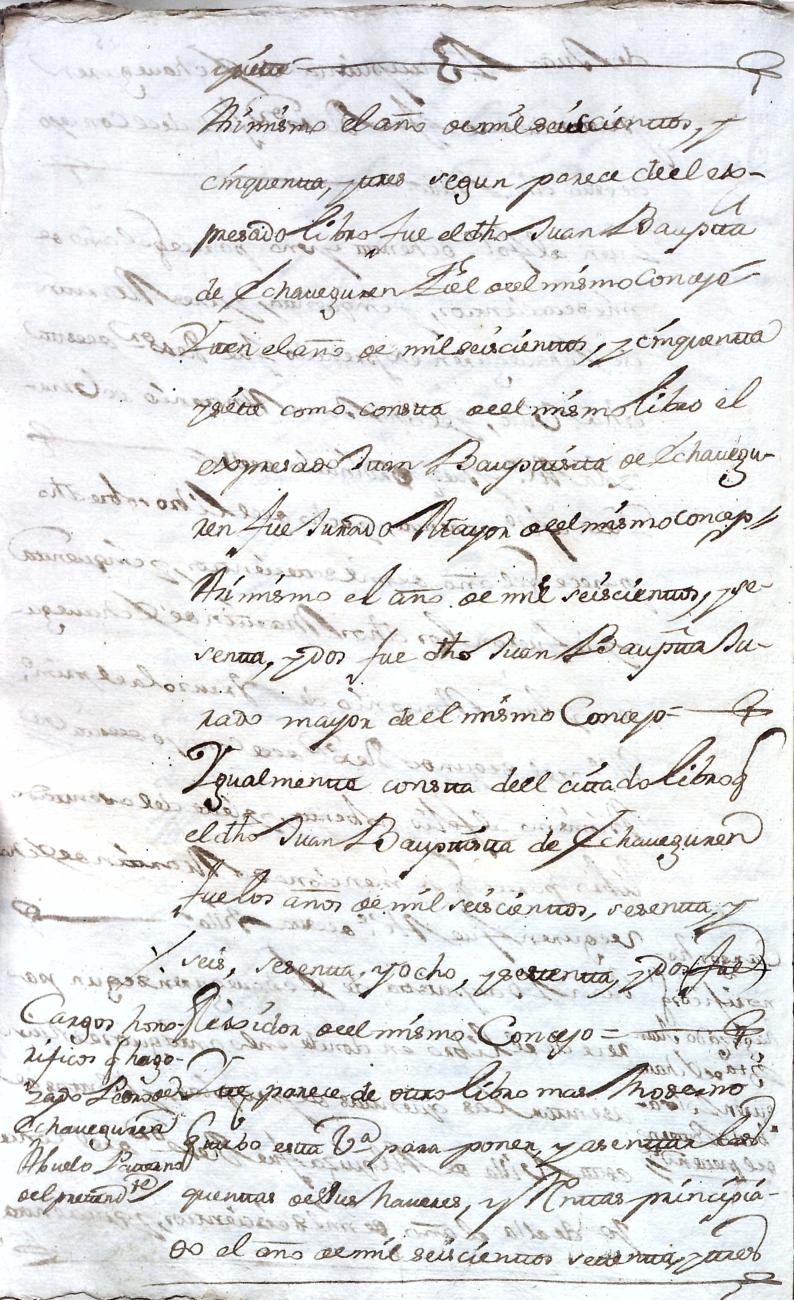 siete
Asimismo el año de mil seiscientos, y
cinquenta, y tres segun parece de el ex-
presado libro fue el dho Juan Bauptta
de Echaveguren fiel de el mismo Concejo
Yten el año de mil seiscientos, y cinquenta
y siete como consta de el mismo libro el
expresado Juan Bauptista de Echavegu-
ren fue Jurado Mayor de el mismo Concejo
Asimismo el año de mil seiscientos, y se-
senta, y dos fue dho Juan Bauptta Ju-
rado mayor de el mismo Concejo=
Ygualmente consta de el cittado libro q
el dho Juan Bauptista de Echaveguren
fue los años de mil seiscientos, sesenta, y
seis, sesenta, y ocho, y setenta, y dos
Rexidor de el mismo Concejo=
Cargos hono-
rificos q ha go-
zado Pedro de
Echaveguren
Abuelo Paterno
del pretendte
Que parece de otro libro mas Moderno
q hubo esta Va para poner, y asentar las
quentas de sus haveres, y Rentas principia-
do el año de mil seiscientos setenta, y tres